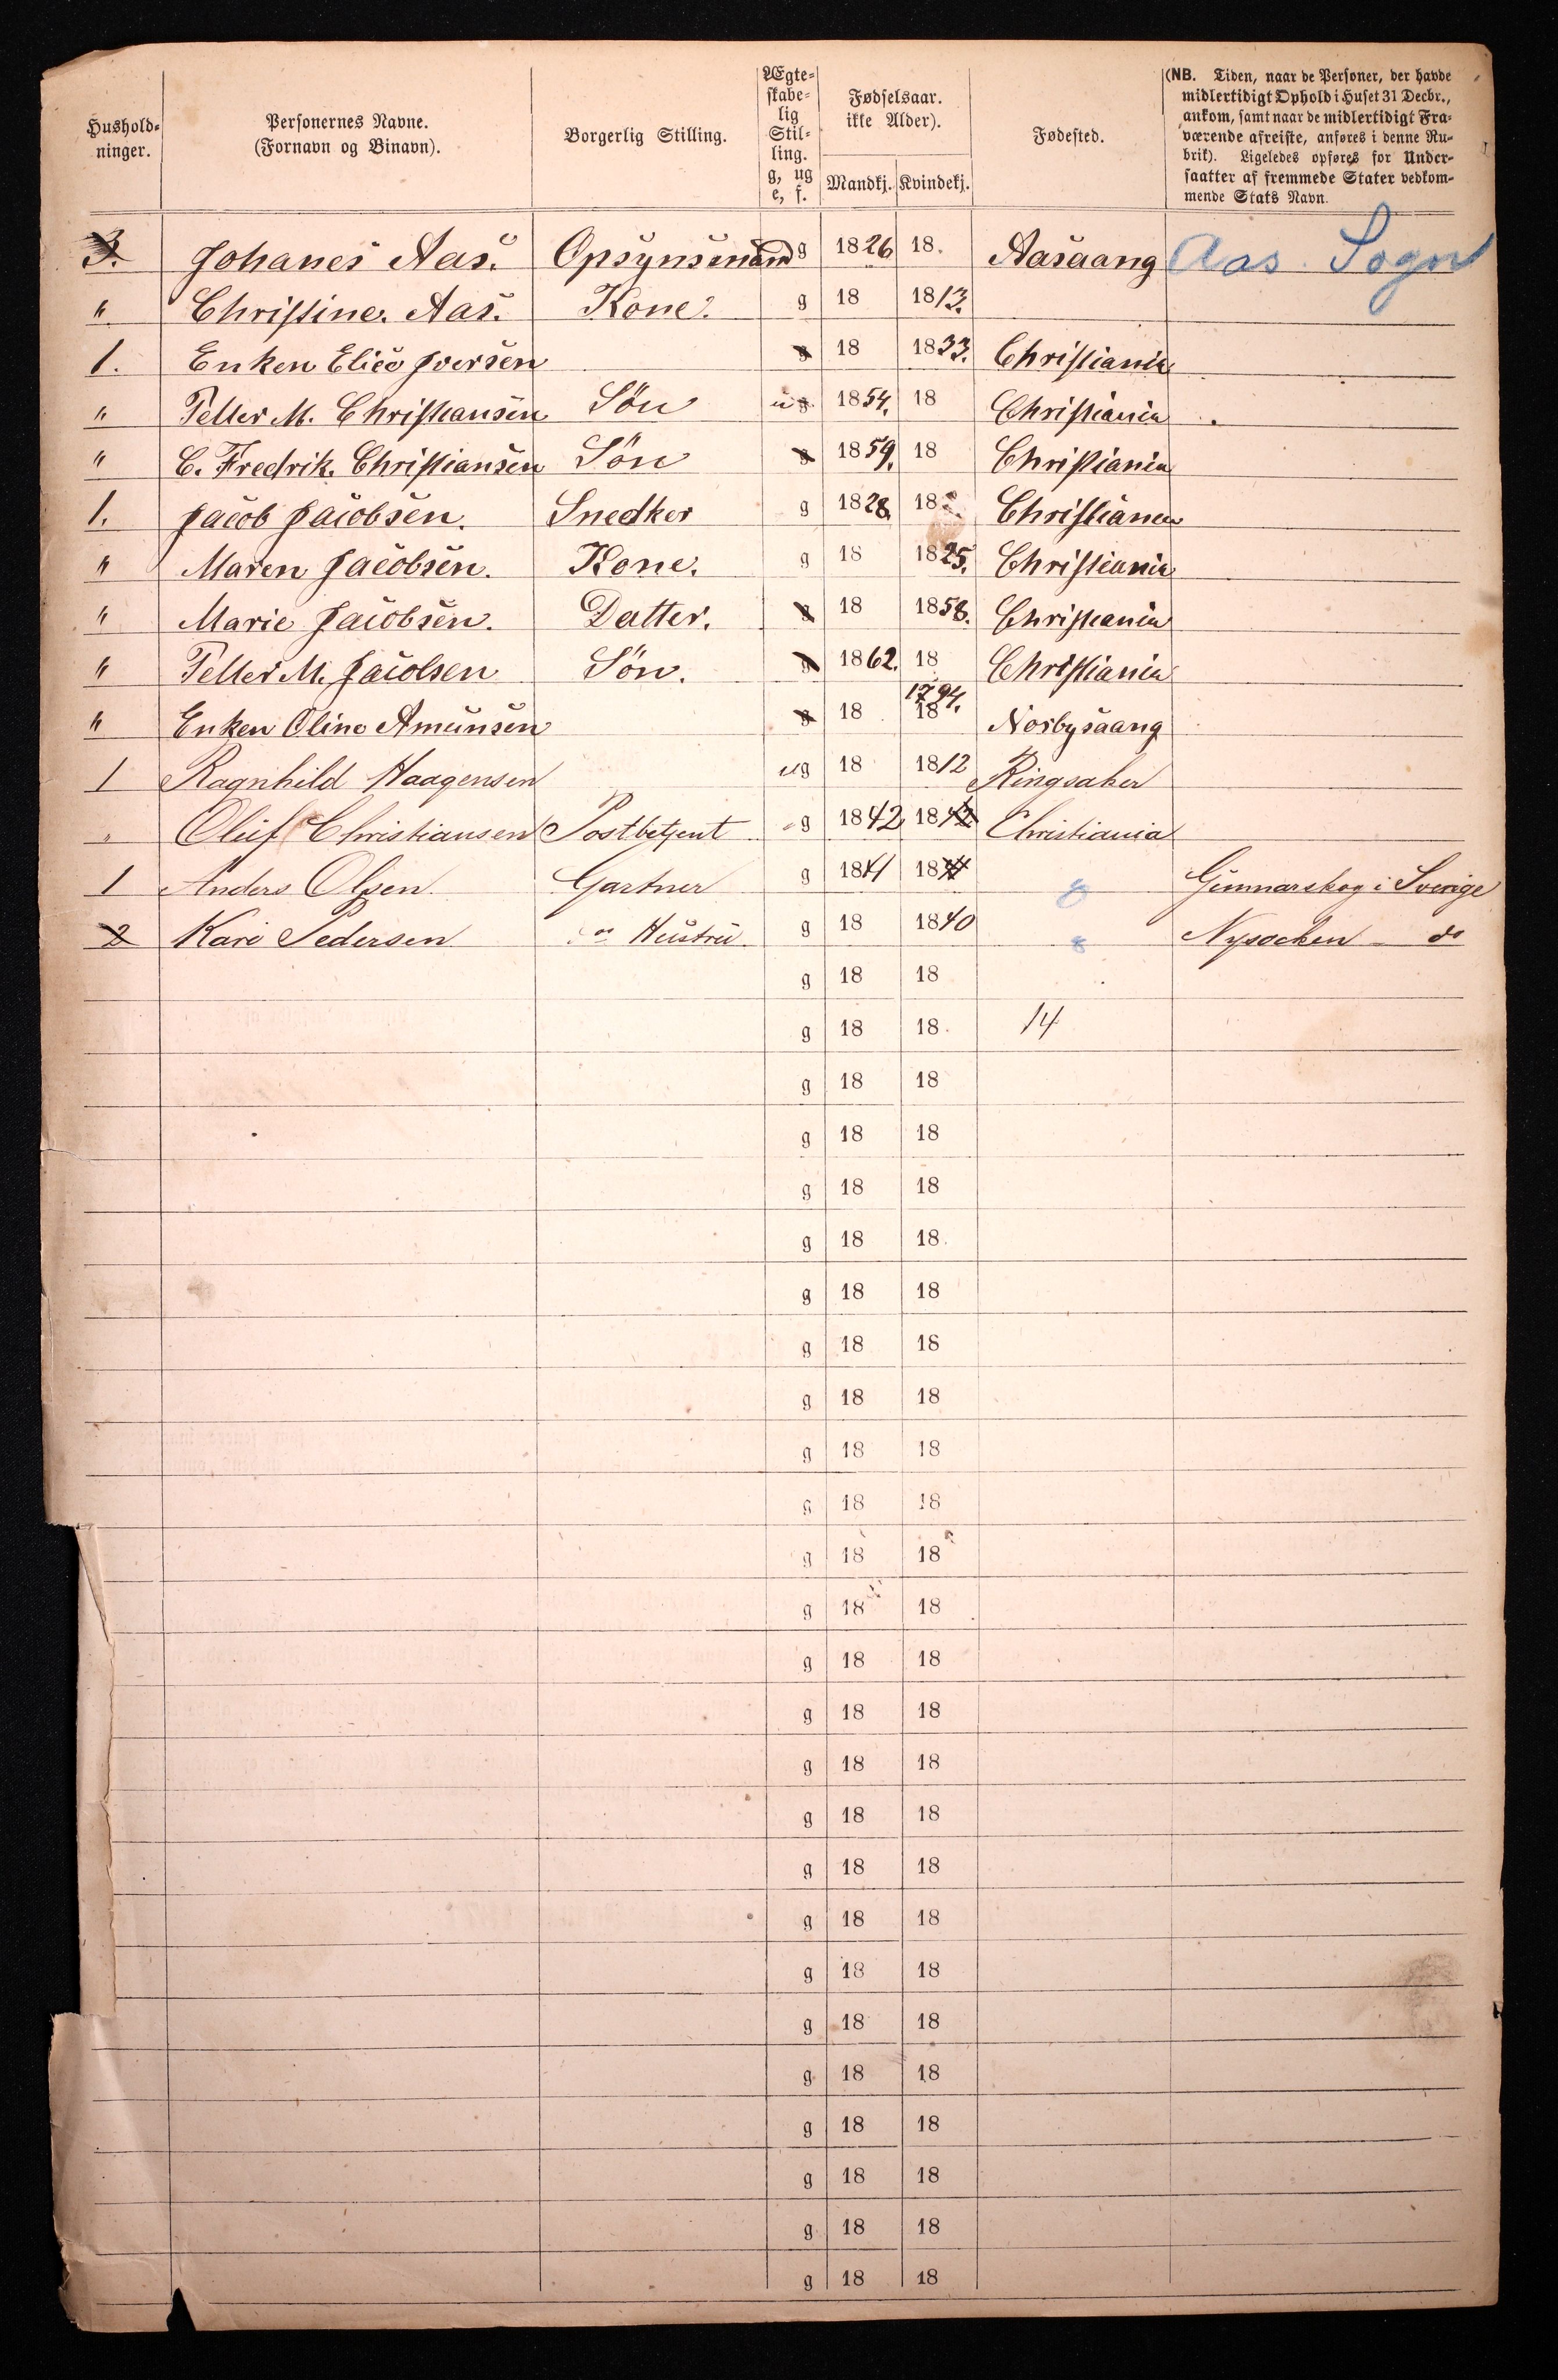 Hushold-
ninger.
Personernes Navne.
(Fornavn og Binavn).
Borgerlig Stilling.
Ægte-
skabe-
lig
Stil-
ling.
g, ug
e, f.
Fødselsaar.
ikke Alder).
Mandkj. Kvindekj.
Fødested.
(NB. Tiden, naar de Personer, der havde
midlertidigt Ophold i Huset 31 Decbr.,
ankom, samt naar de midlertidigt Fra-
værende afreiste, anføres i denne Ru-
brik). Ligeledes opføres for Under-
saatter af fremmede Stater vedkom-
mende Stats Navn.
3. Johanes Aas. Opsynsmand g 1826 18 Aasaang Aas Sogn
" Christine. Aas. Kone. g 18 1813.
1. Enken Elieo Iversen g 18 1833. Christiania
" Petter M. Christiansen Sön ug 1854. 18 Christiania
" C. Fredrik Christiansen Sön g 1859. 18 Christiania
1. Jacob Jacobsen. Snedker g 1828. 18 Christiania
" Maren Jacobsen. Kone. g 18 1825. Christiania
" Marie Jacobsen. Datter. g 18 1858. Christiania
" Petter M. Jacobsen Sön. g 1862. 18 Christiania
" Enken Oline Amunsen g 18 18 1794. Nosbysaang
1 Ragnhild Haagensen ug 18 1812 Ringsaker
" Oluf Christiansen Postbetjent g 1842 1842 Christiania
1 Anders Olsen Gartner g 1841 1841 Gunnarskog i Sverige
2 Kari Pedersen Hustru g 18 1840 Nysochen - do
g 18 18
g 18 18 14
g 18 18
g 18 18
g 18 18
g 18 18
g 18 18
g 18 18
g 18 18
g 18 18
g 18 18
g 18 18
g 18 18
g 18 18
g 18 18
g 18 18
g 18 18
g 18 18
g 18 18
g 18 18
g 18 18
g 18 18
g 18 18
g 18 18
g 18 18
g 18 18